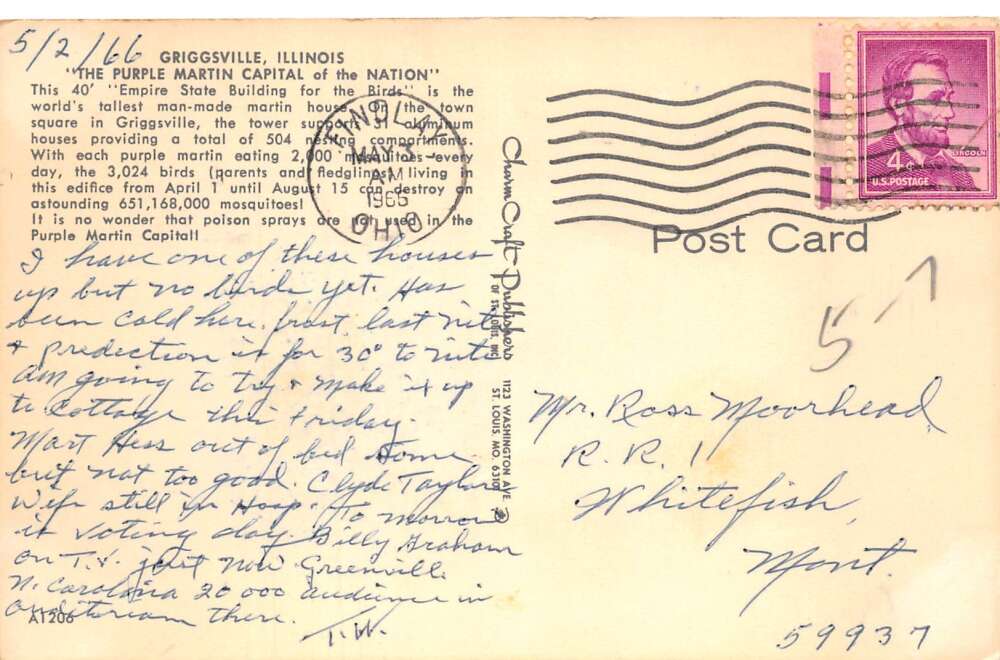 5/2/66
GRIGGSVILLE, ILLINOIS
"THE PURPLE MARTIN CAPITAL of the NATION"
This 40' "Empire State Building for the Birds" is the
world's tallest man-made martin house. On the town
square in Griggsville, the tower supports 31 aluminum
houses providing a total of 504 nesting compartments.
With each purple martin eating 2,000 mosquitoes every
day, the 3,024 birds (parents and fledglings) living in
this edifice from April 1 until August 15 can destroy an
astounding 651,168,000 mosquitoes!
It is no wonder that poison sprays are not used in the
Purple Martin Capital!
I have one of these houses
up but no birds yet. Has
been cold here. frost last nite
+ predection is for 30° to nite
am going to try + make it up
to cottage this Friday.
Mart Hess out of bed some
but not too good. Clyde Taylor
Wife still in Hosp. To morrow
is voting day. Billy Graham
on T.V. just now Greenville
N. Carolina 20 000 audience in
auditoriam there.
T.H.
A1206
FINDLAY
MAY 3
AM
1966
OHIO
CharmCraft Publishers
OF ST. LOUIS, INC.
1123 WASHINGTON AVE.
ST. LOUIS MO. 63101
4¢
LINCOLN
U.S. POSTAGE
Post Card
5
Mr. Ross Moorhead
R. R. 1
Whitefish,
Mont.
59937